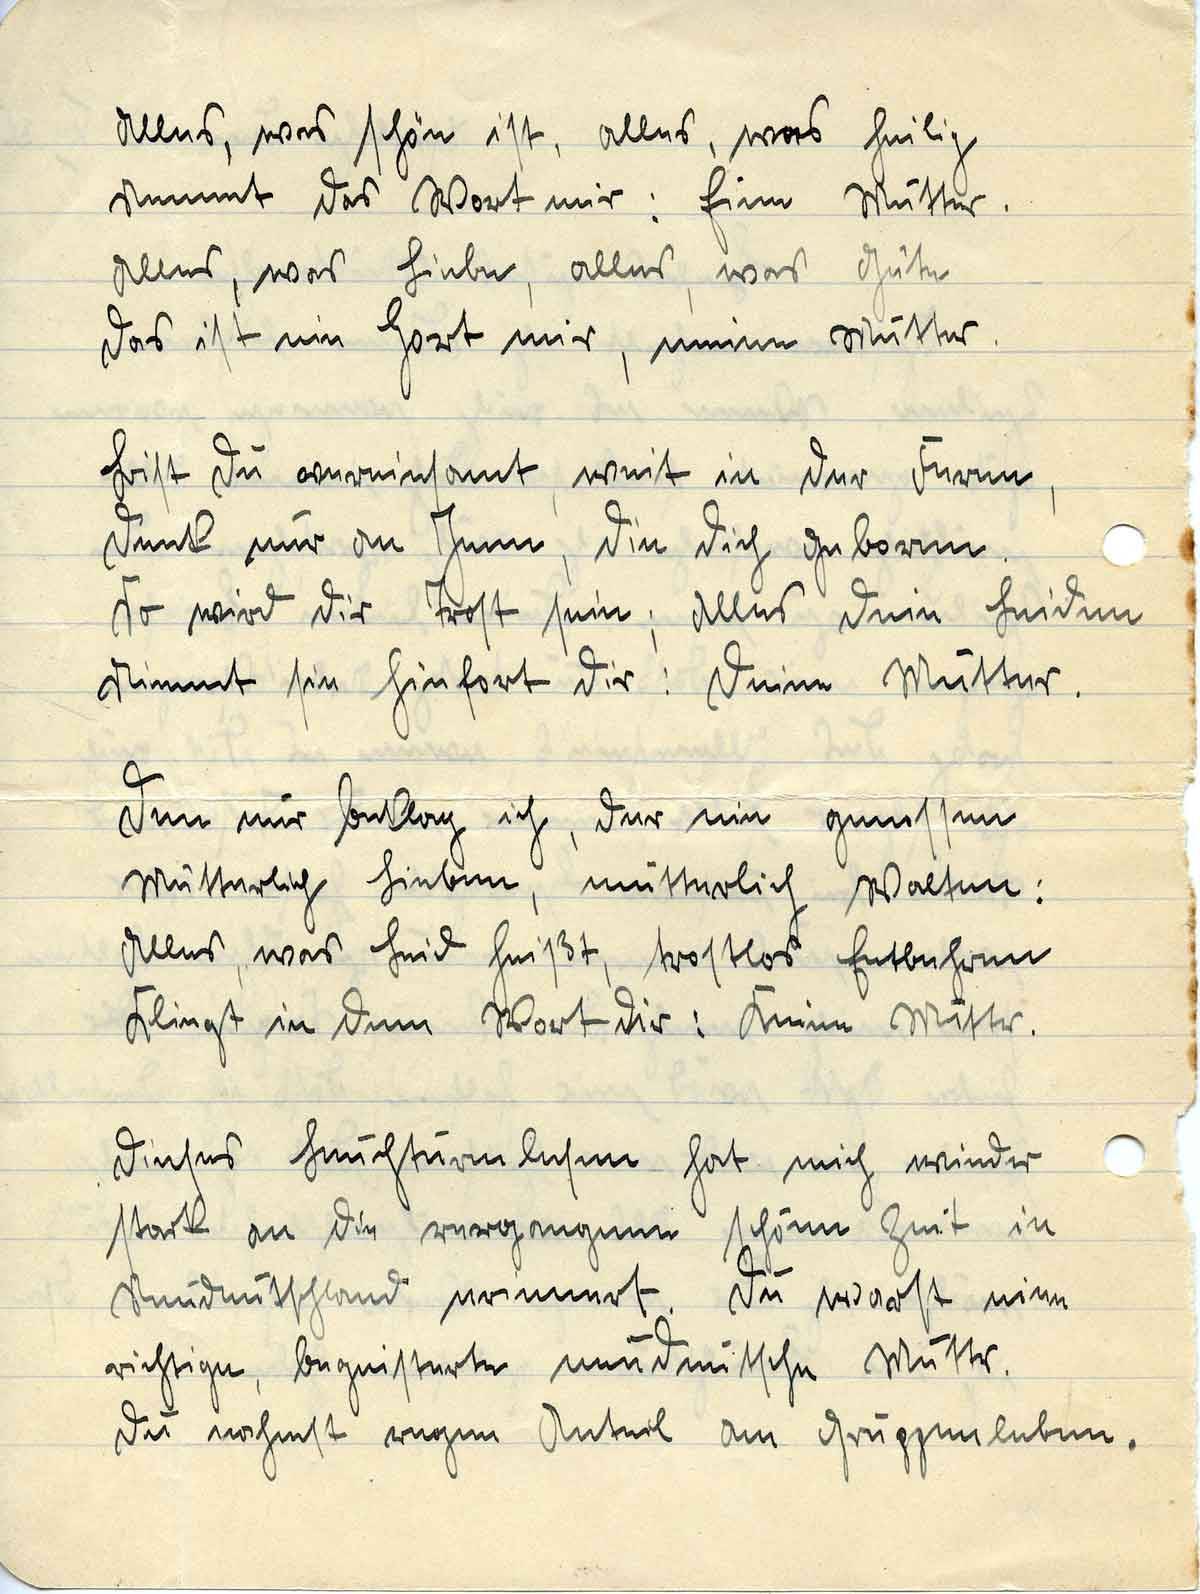 Alles, was schön ist, alles, was heilig
Nennt das Wort mir: Eine Mutter.
Alles, was Liebe, alles, was Güte
Das ist ein Hort mir, meine Mutter.
Bist Du vereinsamt, weit in der Ferne,
Denk nur an Jene, die Dich geboren.
So wird dir Trost sein; alles dein Leiden
Nimmt sie hinfort dir: Deine Mutter.
Den nur beklag ich, der nie genossen
Mütterlich Lieben, mütterlich Walten:
Alles, was Leid heißt, trostlos Entbehren
Klingt in dem Wort dir: Keine Mutter.
Dieses Leuchturmlesen hat mich wieder
stark an die vergangene schöne Zeit in
Neudeutschland erinnert. Du warst eine
richtige, begeisterte neudeutsche Mutter.
Du nahmst regen Anteil am Gruppenleben.